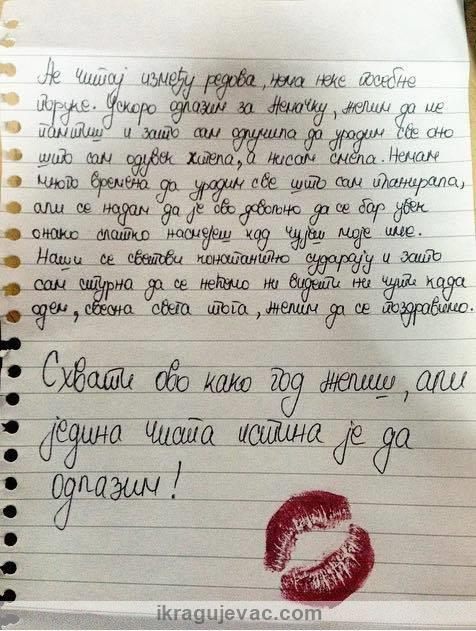 Не читај између редова, нема неке посебне
поруке. Ускоро одлазим за Немачку, желим да ме
памтиш и зато сам одлучила да урадим све оно
што сам одувек хтела, а нисам смела. Немам
много времена да урадим све што сам планирала,
али се надам да је ово довољно да се бар увек
онако слатко насмејеш кад чујеш моје име.
Наши се светови константно сударају и зато
сам сигурна да се нећемо ни видети ни чути када
одем, свесна свега тога, желим да се поздравимо.
Схвати ово како год желиш, али
једина чиста истина је да
одлазим!
ikragujevac.com